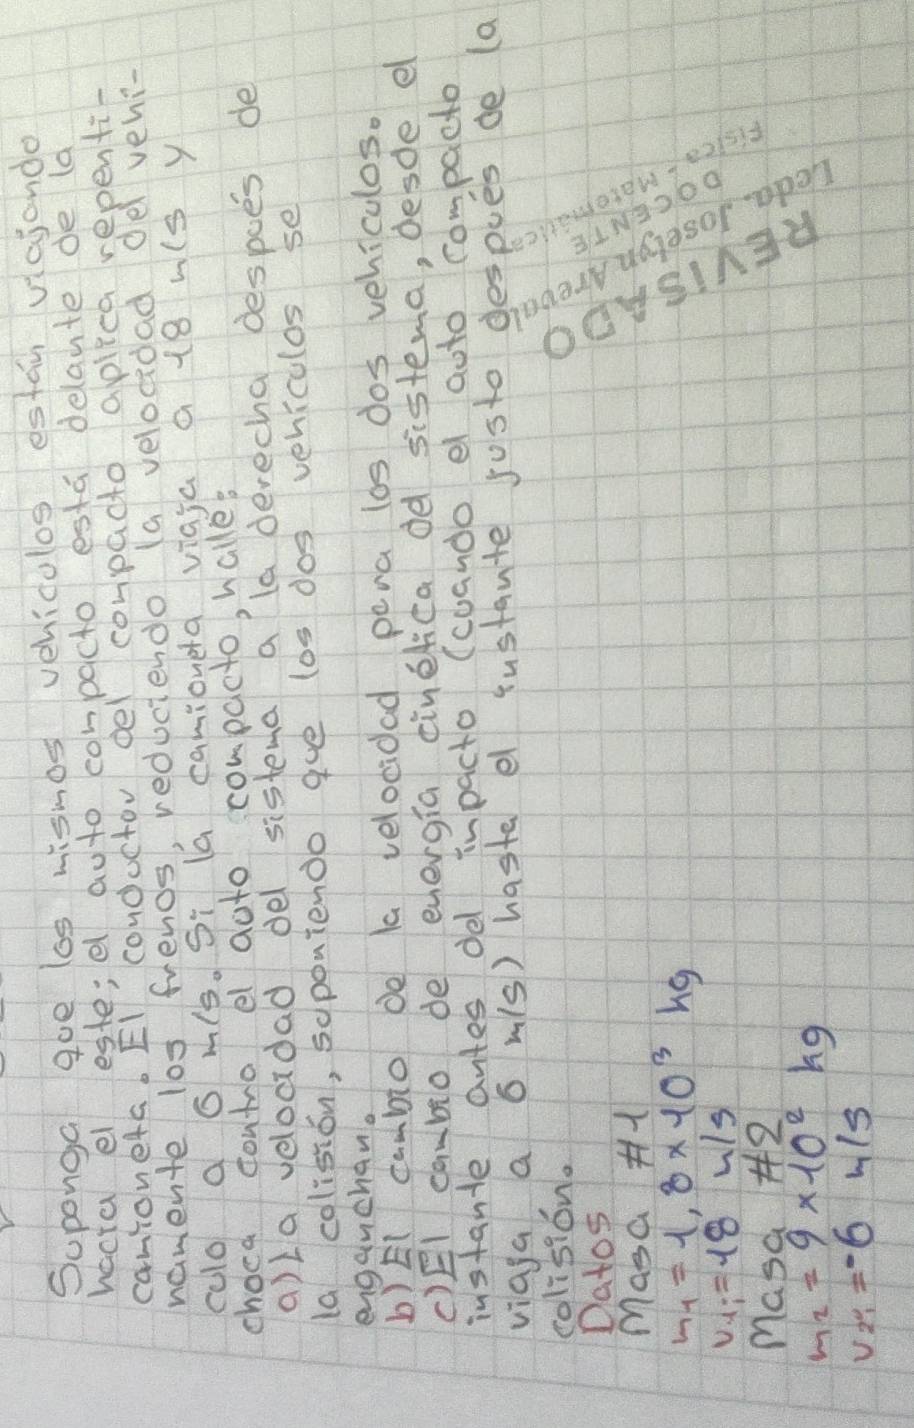 Suponga que los mismos vehículos están viajando
hacia el este; el auto compacto está delante de la
camioneta. El conductor del compacto aplica repenti-
namente los frenos, reduciendo la velocidad del vehi-
culo a 6 m/s. Si la camioneta viaja a 18 m/s y
choca contra el auto compacto, halle:
a) La velocidad del sistema a la derecha después de
la colisión, suponiendo que los dos vehículos se
enganchan.
b) El cambio de la velocidad para los dos vehículos.
c) El cambio de energía cinética del sistema, desde el
instante antes del impacto (cuando el auto compacto
viaja a 6 m/s) hasta el instante justo después de la
colisión.
Datos
Masa #1
m1 = 1,8 x 10³ kg
v1i = 18 m/s
Masa #2
m2 = 9 x 10² kg
v2i = 6 m/s
REVISADO
Lcda. Joselyn Arevalo
DOCENTE
Física - Matemática